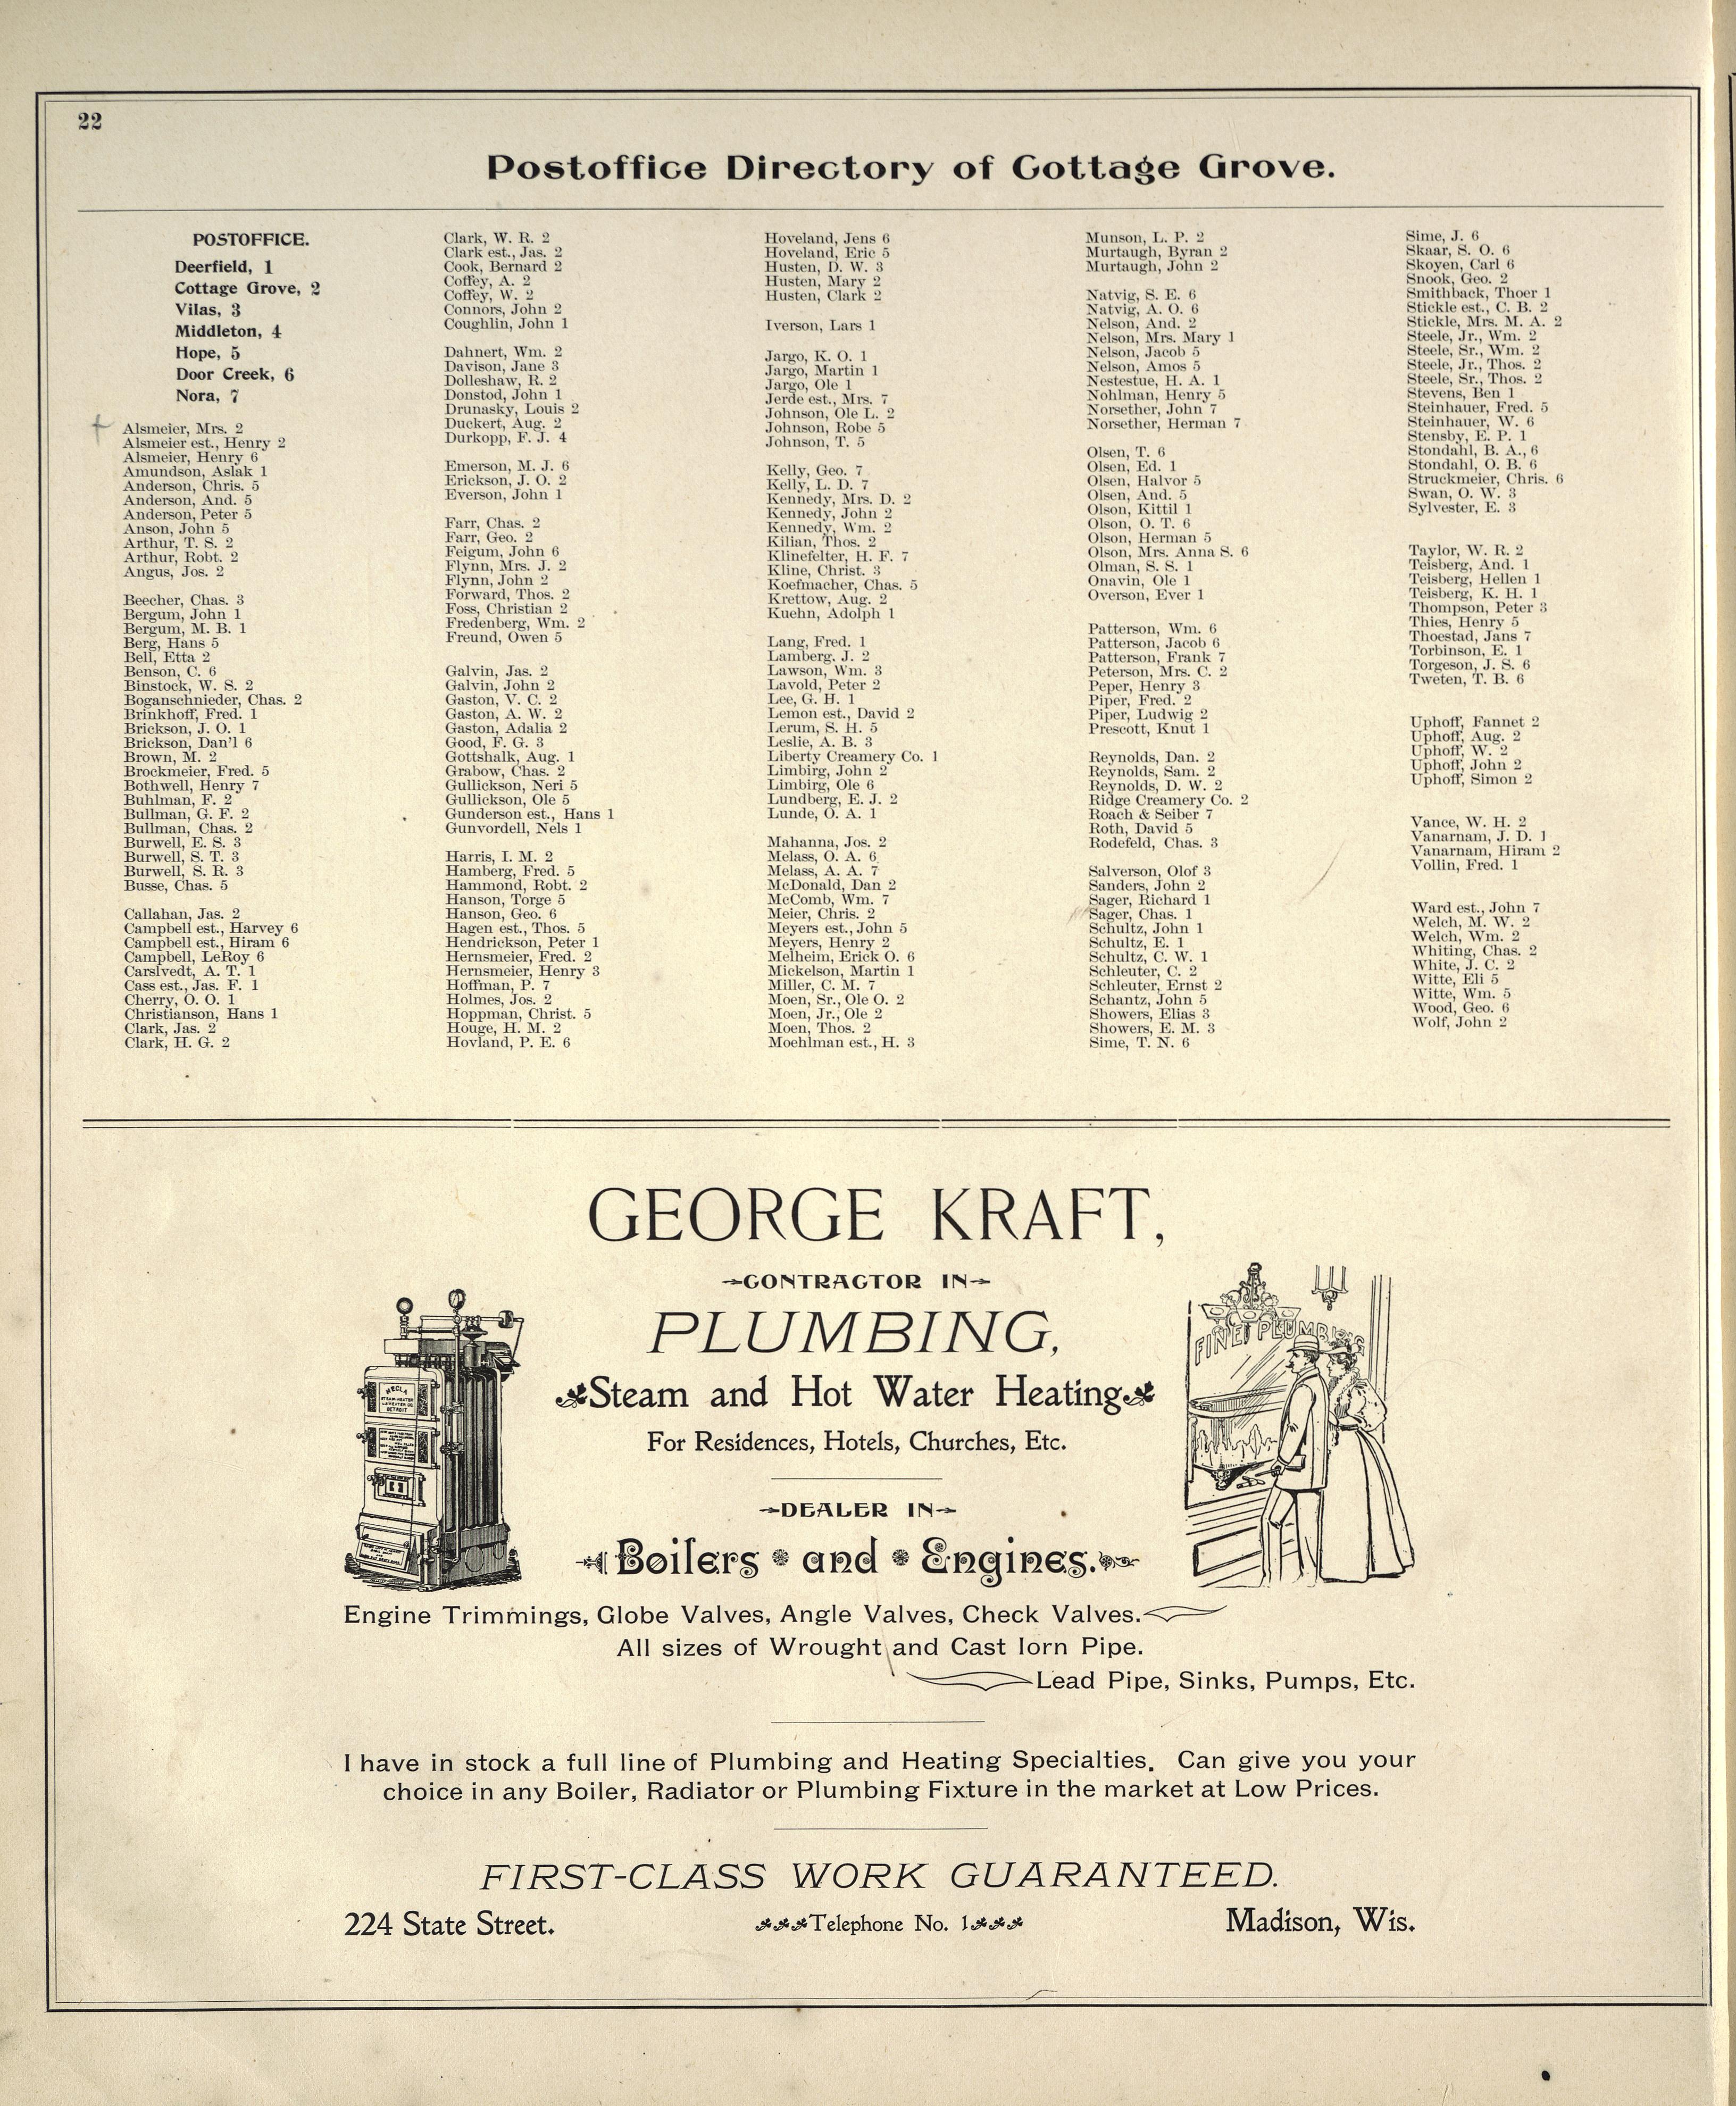 22
Postoffice Directory of Cottage Grove.
POSTOFFICE.
Deerfield, 1
Cottage Grove, 2
Vilas, 3
Middleton, 4
Hope, 5
Door Creek, 6
Nora, 7
Alsmeier, Mrs. 2
Alsmeier est., Henry 2
Alsmeier, Henry 6
Amundson, Aslak 1
Anderson, Chris. 5
Anderson, And. 5
Anderson, Peter 5
Anson, John 5
Arthur, T. S. 2
Arthur, Robt. 2
Angus, Jos. 2
Beecher, Chas. 3
Bergum, John 1
Bergum, M. B. 1
Berg, Hans 5
Bell, Etta 2
Benson, C. 6
Binstock, W. S. 2
Boganschnieder, Chas. 2
Brinkhoff, Fred. 1
Brickson, J. O. 1
Brickson, Dan'l 6
Brown, M. 2
Brockmeier, Fred. 5
Bothwell, Henry 7
Buhlman, F. 2
Bullman, G. F. 2
Bullman, Chas. 2
Burwell, E. S. 3
Burwell, S. T. 3
Burwell, S. R. 3
Busse, Chas. 5
Callahan, Jas. 2
Campbell est., Harvey 6
Campbell est., Hiram 6
Campbell, LeRoy 6
Carslvedt, A. T. 1
Cass est., Jas. F. 1
Cherry, O. O. 1
Christianson, Hans 1
Clark, Jas. 2
Clark, H. G. 2
Clark, W. R. 2
Clark est., Jas. 2
Cook, Bernard 2
Coffey, A. 2
Coffey, W. 2
Connors, John 2
Coughlin, John 1
Dahnert, Wm. 2
Davison, Jane 3
Dolleshaw, R. 2
Donstod, John 1
Drunasky, Louis 2
Duckert, Aug. 2
Durkopp, F. J. 4
Emerson, M. J. 6
Erickson, J. O. 2
Everson, John 1
Farr, Chas. 2
Farr, Geo. 2
Feigum, John 6
Flynn, Mrs. J. 2
Flynn, John 2
Forward, Thos. 2
Foss, Christian 2
Fredenberg, Wm. 2
Freund, Owen 5
Galvin, Jas. 2
Galvin, John 2
Gaston, V. C. 2
Gaston, A. W. 2
Gaston, Adalia 2
Good, F. G. 3
Gottshalk, Aug. 1
Grabow, Chas. 2
Gullickson, Neri 5
Gullickson, Ole 5
Gunderson est., Hans 1
Gunvordell, Nels 1
Harris, I. M. 2
Hamberg, Fred. 5
Hammond, Robt. 2
Hanson, Torge 5
Hanson, Geo. 6
Hagen est., Thos. 5
Hendrickson, Peter 1
Hernsmeier, Fred. 2
Hernsmeier, Henry 3
Hoffman, P. 7
Holmes, Jos. 2
Hoppman, Christ. 5
Houge, H. M. 2
Hovland, P. E. 6
Hoveland, Jens 6
Hoveland, Eric 5
Husten, D. W. 3
Husten, Mary 2
Husten, Clark 2
Iverson, Lars 1
Jargo, K. O. 1
Jargo, Martin 1
Jargo, Ole 1
Jerde est., Mrs. 7
Johnson, Ole L. 2
Johnson, Robe 5
Johnson, T. 5
Kelly, Geo. 7
Kelly, L. D. 7
Kennedy, Mrs. D. 2
Kennedy, John 2
Kennedy, Wm. 2
Kilian, Thos. 2
Klinefelter, H. F. 7
Kline, Christ. 3
Koefmacher, Chas. 5
Krettow, Aug. 2
Kuehn, Adolph 1
Lang, Fred. 1
Lamberg. J. 2
Lawson, Wm. 3
Lavold, Peter 2
Lee, G. H. 1
Lemon est., David 2
Lerum, S. H. 5
Leslie, A. B. 3
Liberty Creamery Co. 1
Limbirg, John 2
Limbirg, Ole 6
Lundberg, E. J. 2
Lunde, O. A. 1
Mahanna, Jos. 2
Melass, O. A. 6
Melass, A. A. 7
McDonald, Dan 2
McComb, Wm. 7
Meier, Chris. 2
Meyers est., John 5
Meyers, Henry 2
Melheim, Erick O. 6
Mickelson, Martin 1
Miller, C. M. 7
Moen, Sr., Ole O. 2
Moen, Jr., Ole 2
Moen, Thos. 2
Moehlman est., H. 3
Munson, L. P. 2
Murtaugh, Byran 2
Murtaugh, John 2
Natvig, S. E. 6
Natvig, A. O. 6
Nelson, And. 2
Nelson, Mrs. Mary 1
Nelson, Jacob 5
Nelson, Amos 5
Nestestue, H. A. 1
Nohlman, Henry 5
Norsether, John 7
Norsether, Herman 7
Olsen, T. 6
Olsen, Ed. 1
Olsen, Halvor 5
Olsen, And. 5
Olson, Kittil 1
Olson, O. T. 6
Olson, Herman 5
Olson, Mrs. Anna S. 6
Olman, S. S. 1
Onavin, Ole 1
Overson, Ever 1
Patterson, Wm. 6
Patterson, Jacob 6
Patterson, Frank 7
Peterson, Mrs. C. 2
Peper, Henry 3
Piper, Fred. 2
Piper, Ludwig 2
Prescott, Knut 1
Reynolds, Dan. 2
Reynolds, Sam. 2
Reynolds, D. W. 2
Ridge Creamery Co. 2
Roach & Seiber 7
Roth, David 5
Rodefeld, Chas. 3
Salverson, Olof 3
Sanders, John 2
Sager, Richard 1
Sager, Chas. 1
Schultz, John 1
Schultz, E. 1
Schultz, C. W. 1
Schleuter, C. 2
Schleuter, Ernst 2
Schantz, John 5
Showers, Elias 3
Showers, E. M. 3
Sime, T. N. 6
Sime, J. 6
Skaar, S. O. 6
Skoyen, Carl 6
Snook, Geo. 2
Smithback, Thoer 1
Stickle est., C. B. 2
Stickle, Mrs. M. A. 2
Steele, Jr., Wm. 2
Steele, Sr., Wm. 2
Steele, Jr., Thos. 2
Steele, Sr., Thos. 2
Stevens, Ben 1
Steinhauer, Fred. 5
Steinhauer, W. 6
Stensby, E. P. 1
Stondahl, B. A., 6
Stondahl, O. B. 6
Struckmeier, Chris. 6
Swan, O. W. 3
Sylvester, E. 3
Taylor, W. R. 2
Teisberg, And. 1
Teisberg, Hellen 1
Teisberg, K. H. 1
Thompson, Peter 3
Thies, Henry 5
Thoestad, Jans 7
Torbinson, E. 1
Torgeson, J. S. 6
Tweten, T. B. 6
Uphoff, Fannet 2
Uphoff, Aug. 2
Uphoff, W. 2
Uphoff, John 2
Uphoff, Simon 2
Vance, W. H. 2
Vanarnam, J. D. 1
Vanarnam, Hiram 2
Vollin, Fred. 1
Ward est., John 7
Welch, M. W. 2
Welch, Wm. 2
Whiting, Chas. 2
White, J. C. 2
Witte, Eli 5
Witte, Wm. 5
Wood, Geo. 6
Wolf, John 2
GEORGE KRAFT,
CONTRACTOR IN
PLUMBING,
Steam and Hot Water Heating
For Residences, Hotels, Churches, Etc.
DEALER IN
Boilers and Engines.
HECLA
DETROIT
FINE PLUMBING
Engine Trimmings, Globe Valves, Angle Valves, Check Valves.
All sizes of Wrought and Cast Iorn Pipe.
Lead Pipe, Sinks, Pumps, Etc.
I have in stock a full line of Plumbing and Heating Specialties. Can give you your
choice in any Boiler, Radiator or Plumbing Fixture in the market at Low Prices.
FIRST-CLASS WORK GUARANTEED.
224 State Street. Telephone No. 1 Madison, Wis.